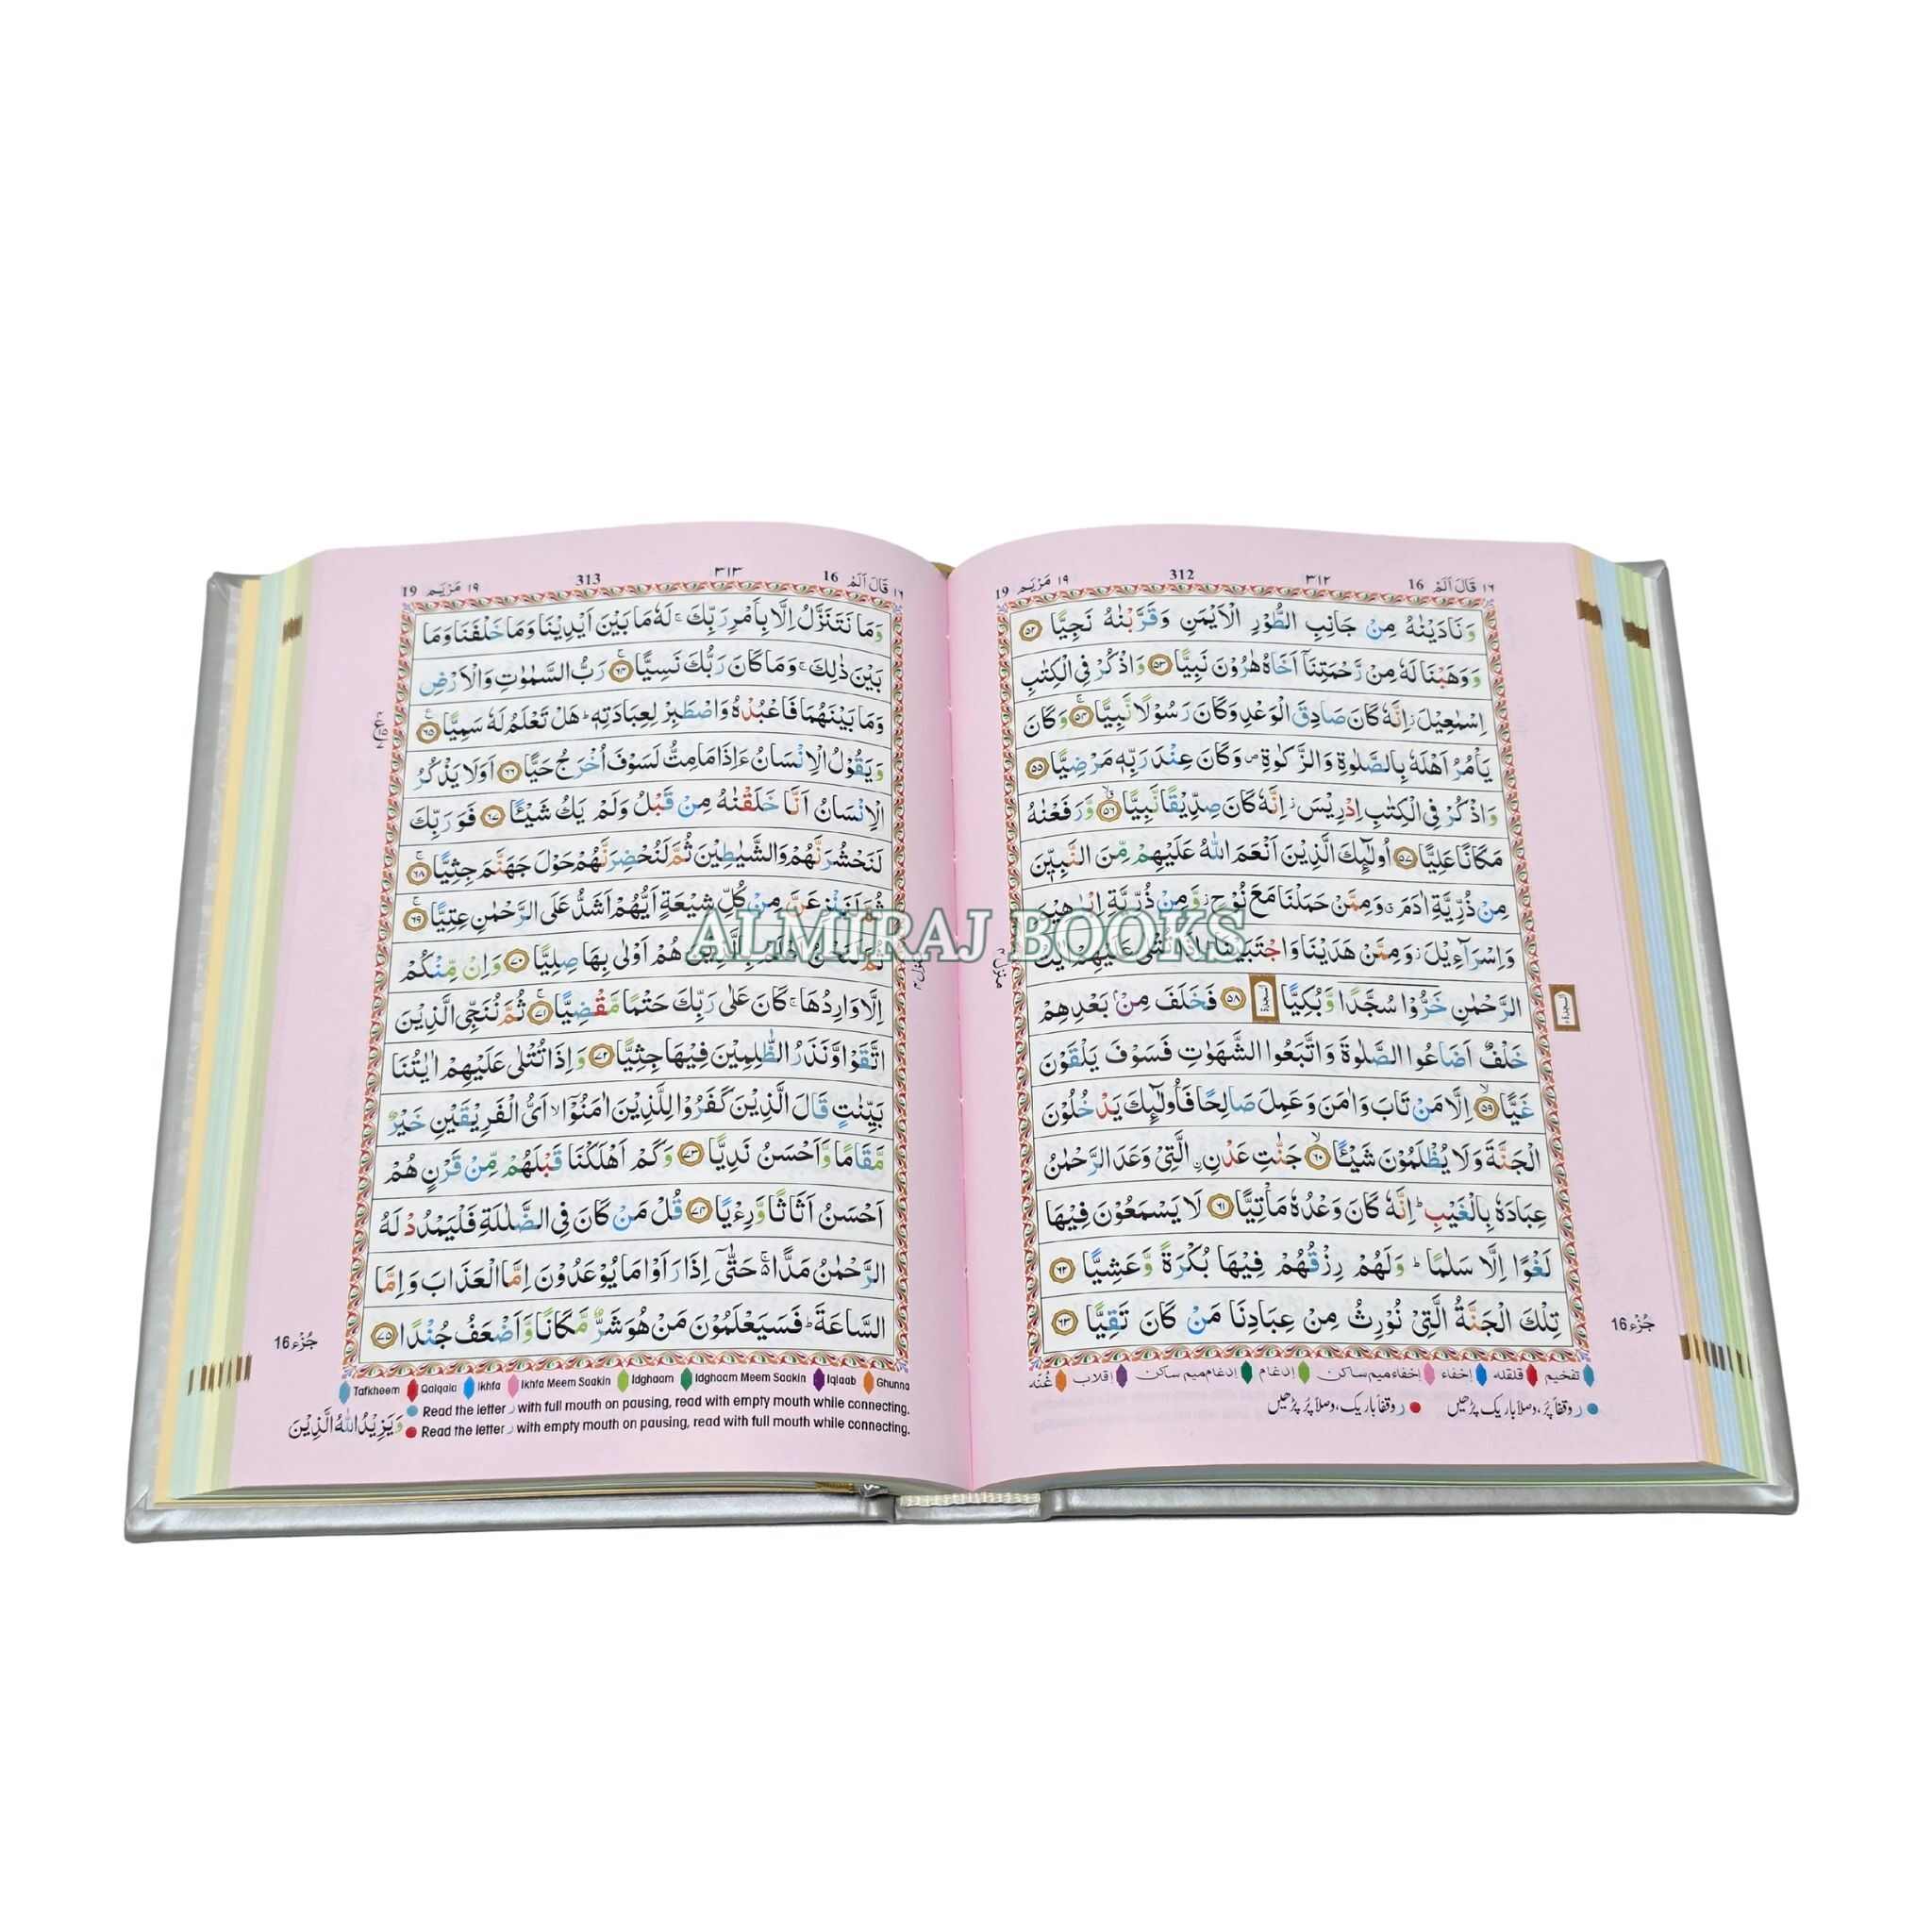 ١٦ قَالَ اَلَمْ 16 ٣١٢ 312 ١٩ مَرْيَم 19
وَنَادَيْنٰهُ مِنْ جَانِبِ الطُّوْرِ الْاَيْمَنِ وَقَرَّبْنٰهُ نَجِيًّا ٥٢
وَوَهَبْنَا لَهٗ مِنْ رَّحْمَتِنَآ اَخَاهُ هٰرُوْنَ نَبِيًّا ٥٣ وَاذْكُرْ فِى الْكِتٰبِ
اِسْمٰعِيْلَ ز اِنَّهٗ كَانَ صَادِقَ الْوَعْدِ وَكَانَ رَسُوْلًا نَّبِيًّا ٥٤ وَكَانَ
يَاْمُرُ اَهْلَهٗ بِالصَّلٰوةِ وَالزَّكٰوةِ ص وَكَانَ عِنْدَ رَبِّهٖ مَرْضِيًّا ٥٥
وَاذْكُرْ فِى الْكِتٰبِ اِدْرِيْسَ ز اِنَّهٗ كَانَ صِدِّيْقًا نَّبِيًّا ٥٦ وَّرَفَعْنٰهُ
مَكَانًا عَلِيًّا ٥٧ اُولٰٓئِكَ الَّذِيْنَ اَنْعَمَ اللّٰهُ عَلَيْهِمْ مِّنَ النَّبِيّٖنَ
مِنْ ذُرِّيَّةِ اٰدَمَ ق وَمِمَّنْ حَمَلْنَا مَعَ نُوْحٍ ز وَّمِنْ ذُرِّيَّةِ اِبْرٰهِيْمَ
وَاِسْرَآءِيْلَ ز وَمِمَّنْ هَدَيْنَا وَاجْتَبَيْنَا ط اِذَا تُتْلٰى عَلَيْهِمْ اٰيٰتُ
الرَّحْمٰنِ خَرُّوْا سُجَّدًا وَّبُكِيًّا السجدة ٥٨ فَخَلَفَ مِنْۢ بَعْدِهِمْ
خَلْفٌ اَضَاعُوا الصَّلٰوةَ وَاتَّبَعُوا الشَّهَوٰتِ فَسَوْفَ يَلْقَوْنَ
غَيًّا ٥٩ اِلَّا مَنْ تَابَ وَاٰمَنَ وَعَمِلَ صَالِحًا فَاُولٰٓئِكَ يَدْخُلُوْنَ
الْجَنَّةَ وَلَا يُظْلَمُوْنَ شَيْـًٔا ٦٠ جَنّٰتِ عَدْنِ ۨ الَّتِىْ وَعَدَ الرَّحْمٰنُ
عِبَادَهٗ بِالْغَيْبِ ط اِنَّهٗ كَانَ وَعْدُهٗ مَاْتِيًّا ٦١ لَا يَسْمَعُوْنَ فِيْهَا
لَغْوًا اِلَّا سَلٰمًا ط وَلَهُمْ رِزْقُهُمْ فِيْهَا بُكْرَةً وَّعَشِيًّا ٦٢
تِلْكَ الْجَنَّةُ الَّتِىْ نُوْرِثُ مِنْ عِبَادِنَا مَنْ كَانَ تَقِيًّا ٦٣
السجدة
منزل ٤
جُزْء 16
تفخیم قلقله إخفاء إخفاءمیم ساکن إدغام إدغام میم ساکن إقلاب غُنّه
ر وقفاً پُر، وصلاً باریک پڑھیں ر وقفاً باریک، وصلاً پُر پڑھیں
١٦ قَالَ اَلَمْ 16 ٣١٣ 313 ١٩ مَرْيَم 19
وَمَا نَتَنَزَّلُ اِلَّا بِاَمْرِ رَبِّكَ ج لَهٗ مَا بَيْنَ اَيْدِيْنَا وَمَا خَلْفَنَا وَمَا
بَيْنَ ذٰلِكَ ج وَمَا كَانَ رَبُّكَ نَسِيًّا ٦٤ رَبُّ السَّمٰوٰتِ وَالْاَرْضِ
وَمَا بَيْنَهُمَا فَاعْبُدْهُ وَاصْطَبِرْ لِعِبَادَتِهٖ ط هَلْ تَعْلَمُ لَهٗ سَمِيًّا ٦٥
وَيَقُوْلُ الْاِنْسَانُ ءَاِذَا مَا مِتُّ لَسَوْفَ اُخْرَجُ حَيًّا ٦٦ اَوَلَا يَذْكُرُ
الْاِنْسَانُ اَنَّا خَلَقْنٰهُ مِنْ قَبْلُ وَلَمْ يَكُ شَيْـًٔا ٦٧ فَوَرَبِّكَ
لَنَحْشُرَنَّهُمْ وَالشَّيٰطِيْنَ ثُمَّ لَنُحْضِرَنَّهُمْ حَوْلَ جَهَنَّمَ جِثِيًّا ٦٨
ثُمَّ لَنَنْزِعَنَّ مِنْ كُلِّ شِيْعَةٍ اَيُّهُمْ اَشَدُّ عَلَى الرَّحْمٰنِ عِتِيًّا ٦٩
ثُمَّ لَنَحْنُ اَعْلَمُ بِالَّذِيْنَ هُمْ اَوْلٰى بِهَا صِلِيًّا ٧٠ وَاِنْ مِّنْكُمْ
اِلَّا وَارِدُهَا ج كَانَ عَلٰى رَبِّكَ حَتْمًا مَّقْضِيًّا ٧١ ثُمَّ نُنَجِّى الَّذِيْنَ
اتَّقَوْا وَّنَذَرُ الظّٰلِمِيْنَ فِيْهَا جِثِيًّا ٧٢ وَاِذَا تُتْلٰى عَلَيْهِمْ اٰيٰتُنَا
بَيِّنٰتٍ قَالَ الَّذِيْنَ كَفَرُوْا لِلَّذِيْنَ اٰمَنُوْٓا لا اَىُّ الْفَرِيْقَيْنِ خَيْرٌ
مَّقَامًا وَّاَحْسَنُ نَدِيًّا ٧٣ وَكَمْ اَهْلَكْنَا قَبْلَهُمْ مِّنْ قَرْنٍ هُمْ
اَحْسَنُ اَثَاثًا وَّرِءْيًا ٧٤ قُلْ مَنْ كَانَ فِى الضَّلٰلَةِ فَلْيَمْدُدْ لَهُ
الرَّحْمٰنُ مَدًّا ج حَتّٰٓى اِذَا رَاَوْا مَا يُوْعَدُوْنَ اِمَّا الْعَذَابَ وَاِمَّا
السَّاعَةَ ط فَسَيَعْلَمُوْنَ مَنْ هُوَ شَرٌّ مَّكَانًا وَّاَضْعَفُ جُنْدًا ٧٥
جُزْء 16
Tafkheem Qalqala Ikhfa Ikhfa Meem Saakin Idghaam Idghaam Meem Saakin Iqlaab Ghunna
Read the letter ر with full mouth on pausing, read with empty mouth while connecting.
Read the letter ر with empty mouth on pausing, read with full mouth while connecting.
وَيَزِيْدُ اللّٰهُ الَّذِيْنَ
ALMIRAJ BOOKS